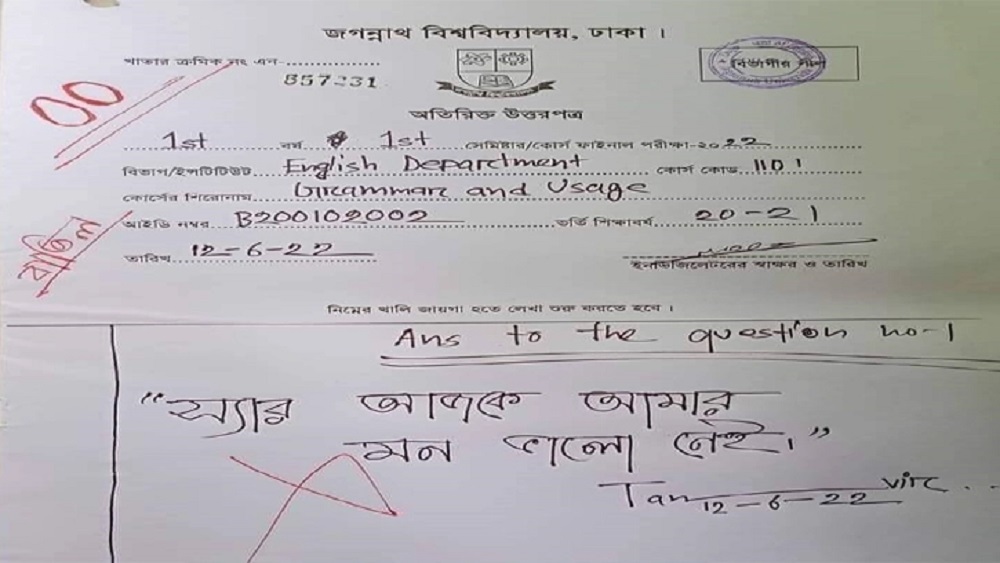 জগন্নাথ বিশ্ববিদ্যালয়, ঢাকা।
খাতার ক্রমিক নং এন-
857231
00
অতিরিক্ত উত্তরপত্র
1st বর্ষ 1st সেমিষ্টার/কোর্স ফাইনাল পরীক্ষা-২০22
বিভাগ/ইন্সটিটিউট English Department কোর্স কোড 1101
কোর্সের শিরোনাম Grammar and Usage
আইডি নম্বর B200102002 ভর্তি শিক্ষাবর্ষ 20-21
বাতিল
তারিখ 12-6-22 ইনভিজিলেটরের স্বাক্ষর ও তারিখ
নিম্নের খালি জায়গা হতে লেখা শুরু করতে হবে।
Ans to the question no-1
"স্যার আজকে আমার
মন ভালো নেই।"
Tan
12-6-22